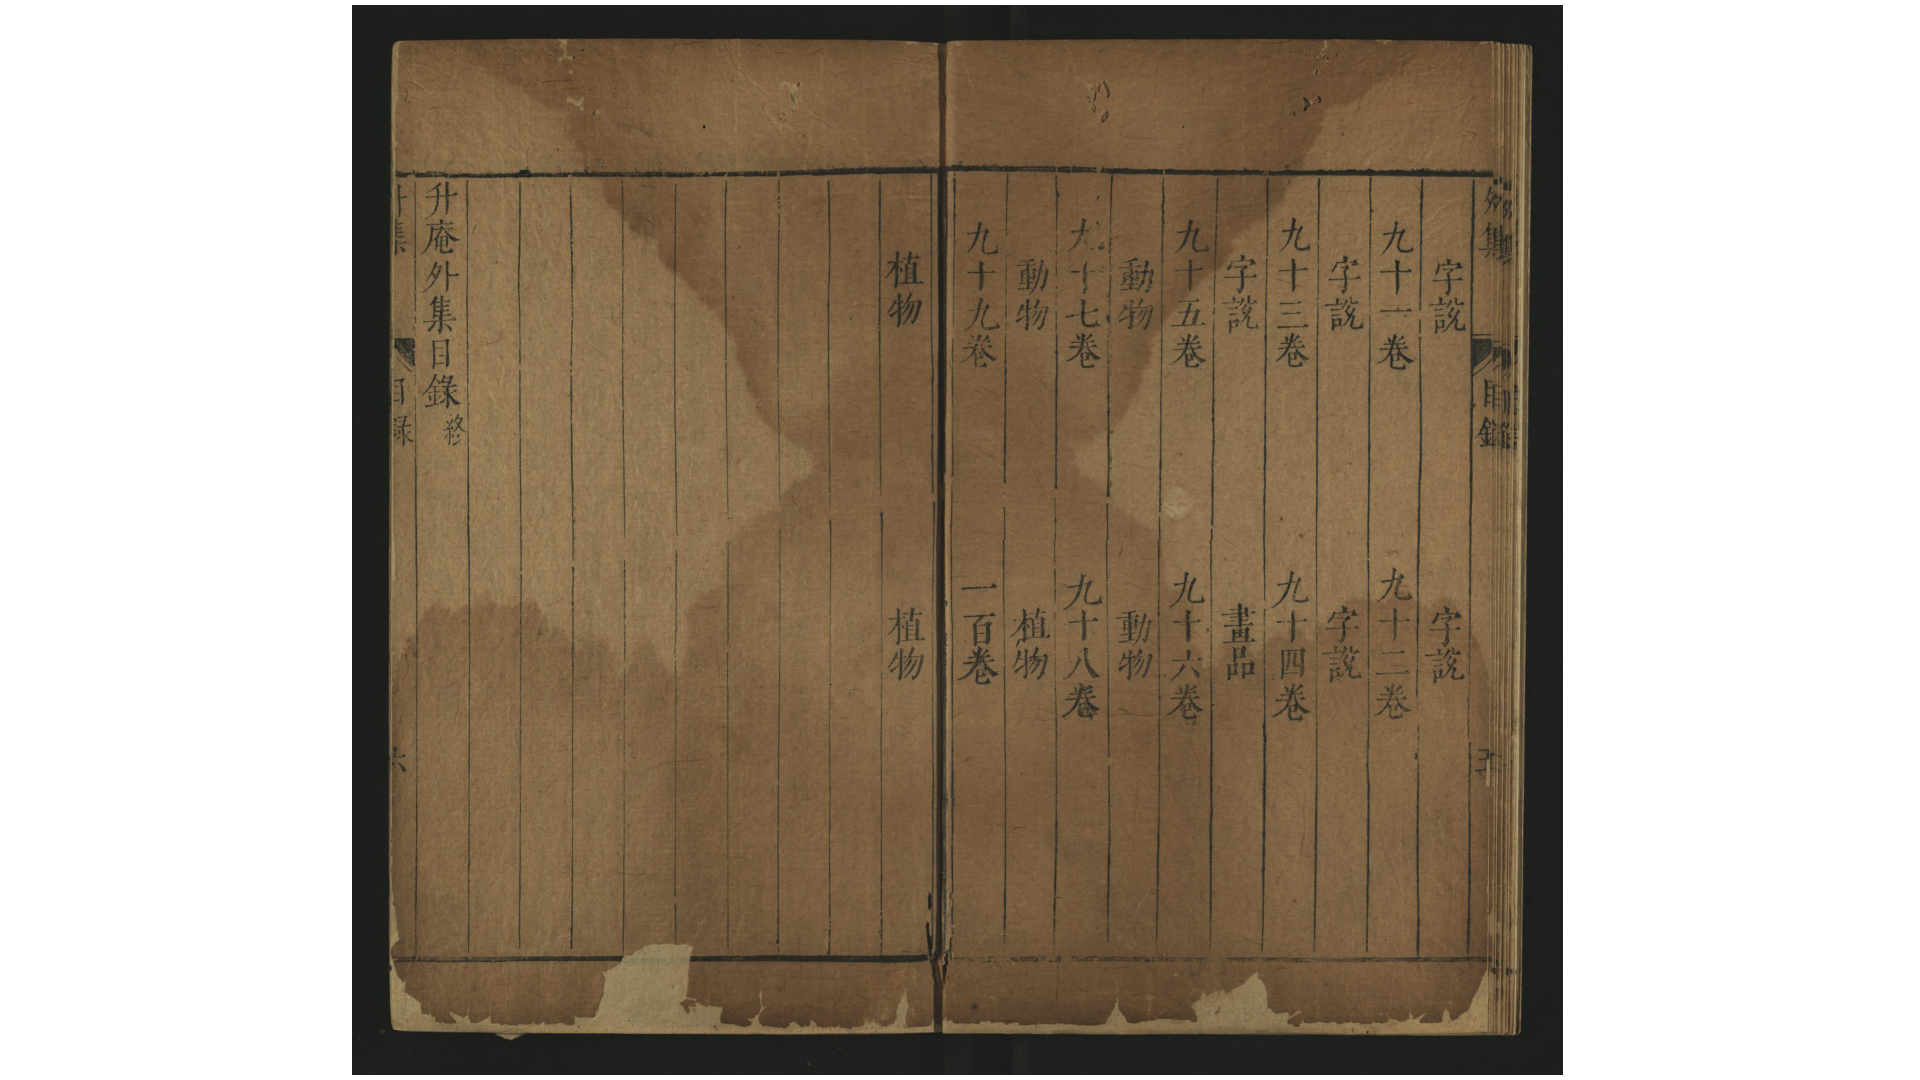 外集 目錄 五
字說 字說
九十一卷 九十二卷
字說 字說
九十三卷 九十四卷
字說 畫品
九十五卷 九十六卷
動物 動物
九十七卷 九十八卷
動物 植物
九十九卷 一百卷
植物 植物
升庵外集目錄終
升 集 目錄 六